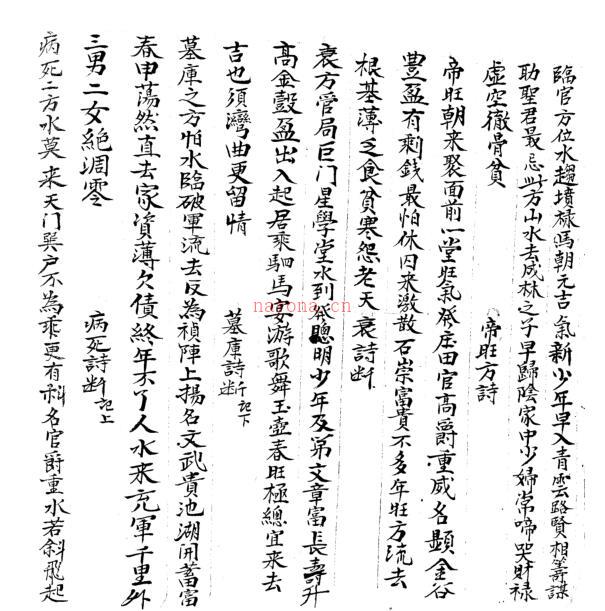 臨官方位水趨墳祿馬朝元吉氣新少年早入青雲路賢相籌謀
助聖君最忌此方山水去成林之子早歸陰家中少婦常啼哭財祿
虛空徹骨貧 帝旺方詩
帝旺朝來聚面前一堂旺氣發庄田官高爵重威名顯金谷
豐盈有剩錢最怕休囚來激散石崇富貴不多年旺方流去
根基薄乏食貧寒怨老天衰詩断
衰方管局巨门星學堂水到發聰明少年及第文章富長壽升
高金穀盈出入起居乘駟馬宴游歌舞玉壺春旺極總宜來去
吉也須灣曲更留情 墓庫詩断記下
墓庫之方怕水臨破軍流去反為禎陣上揚名文武貴池湖開蓄富
春申蕩然直去家資薄欠債終年不了人水来充軍千里外
三男二女絕凋零 病死詩断記上
病死二方水莫来天门巽户不為乖更有科名官爵重水若斜飛起
nayona.cn